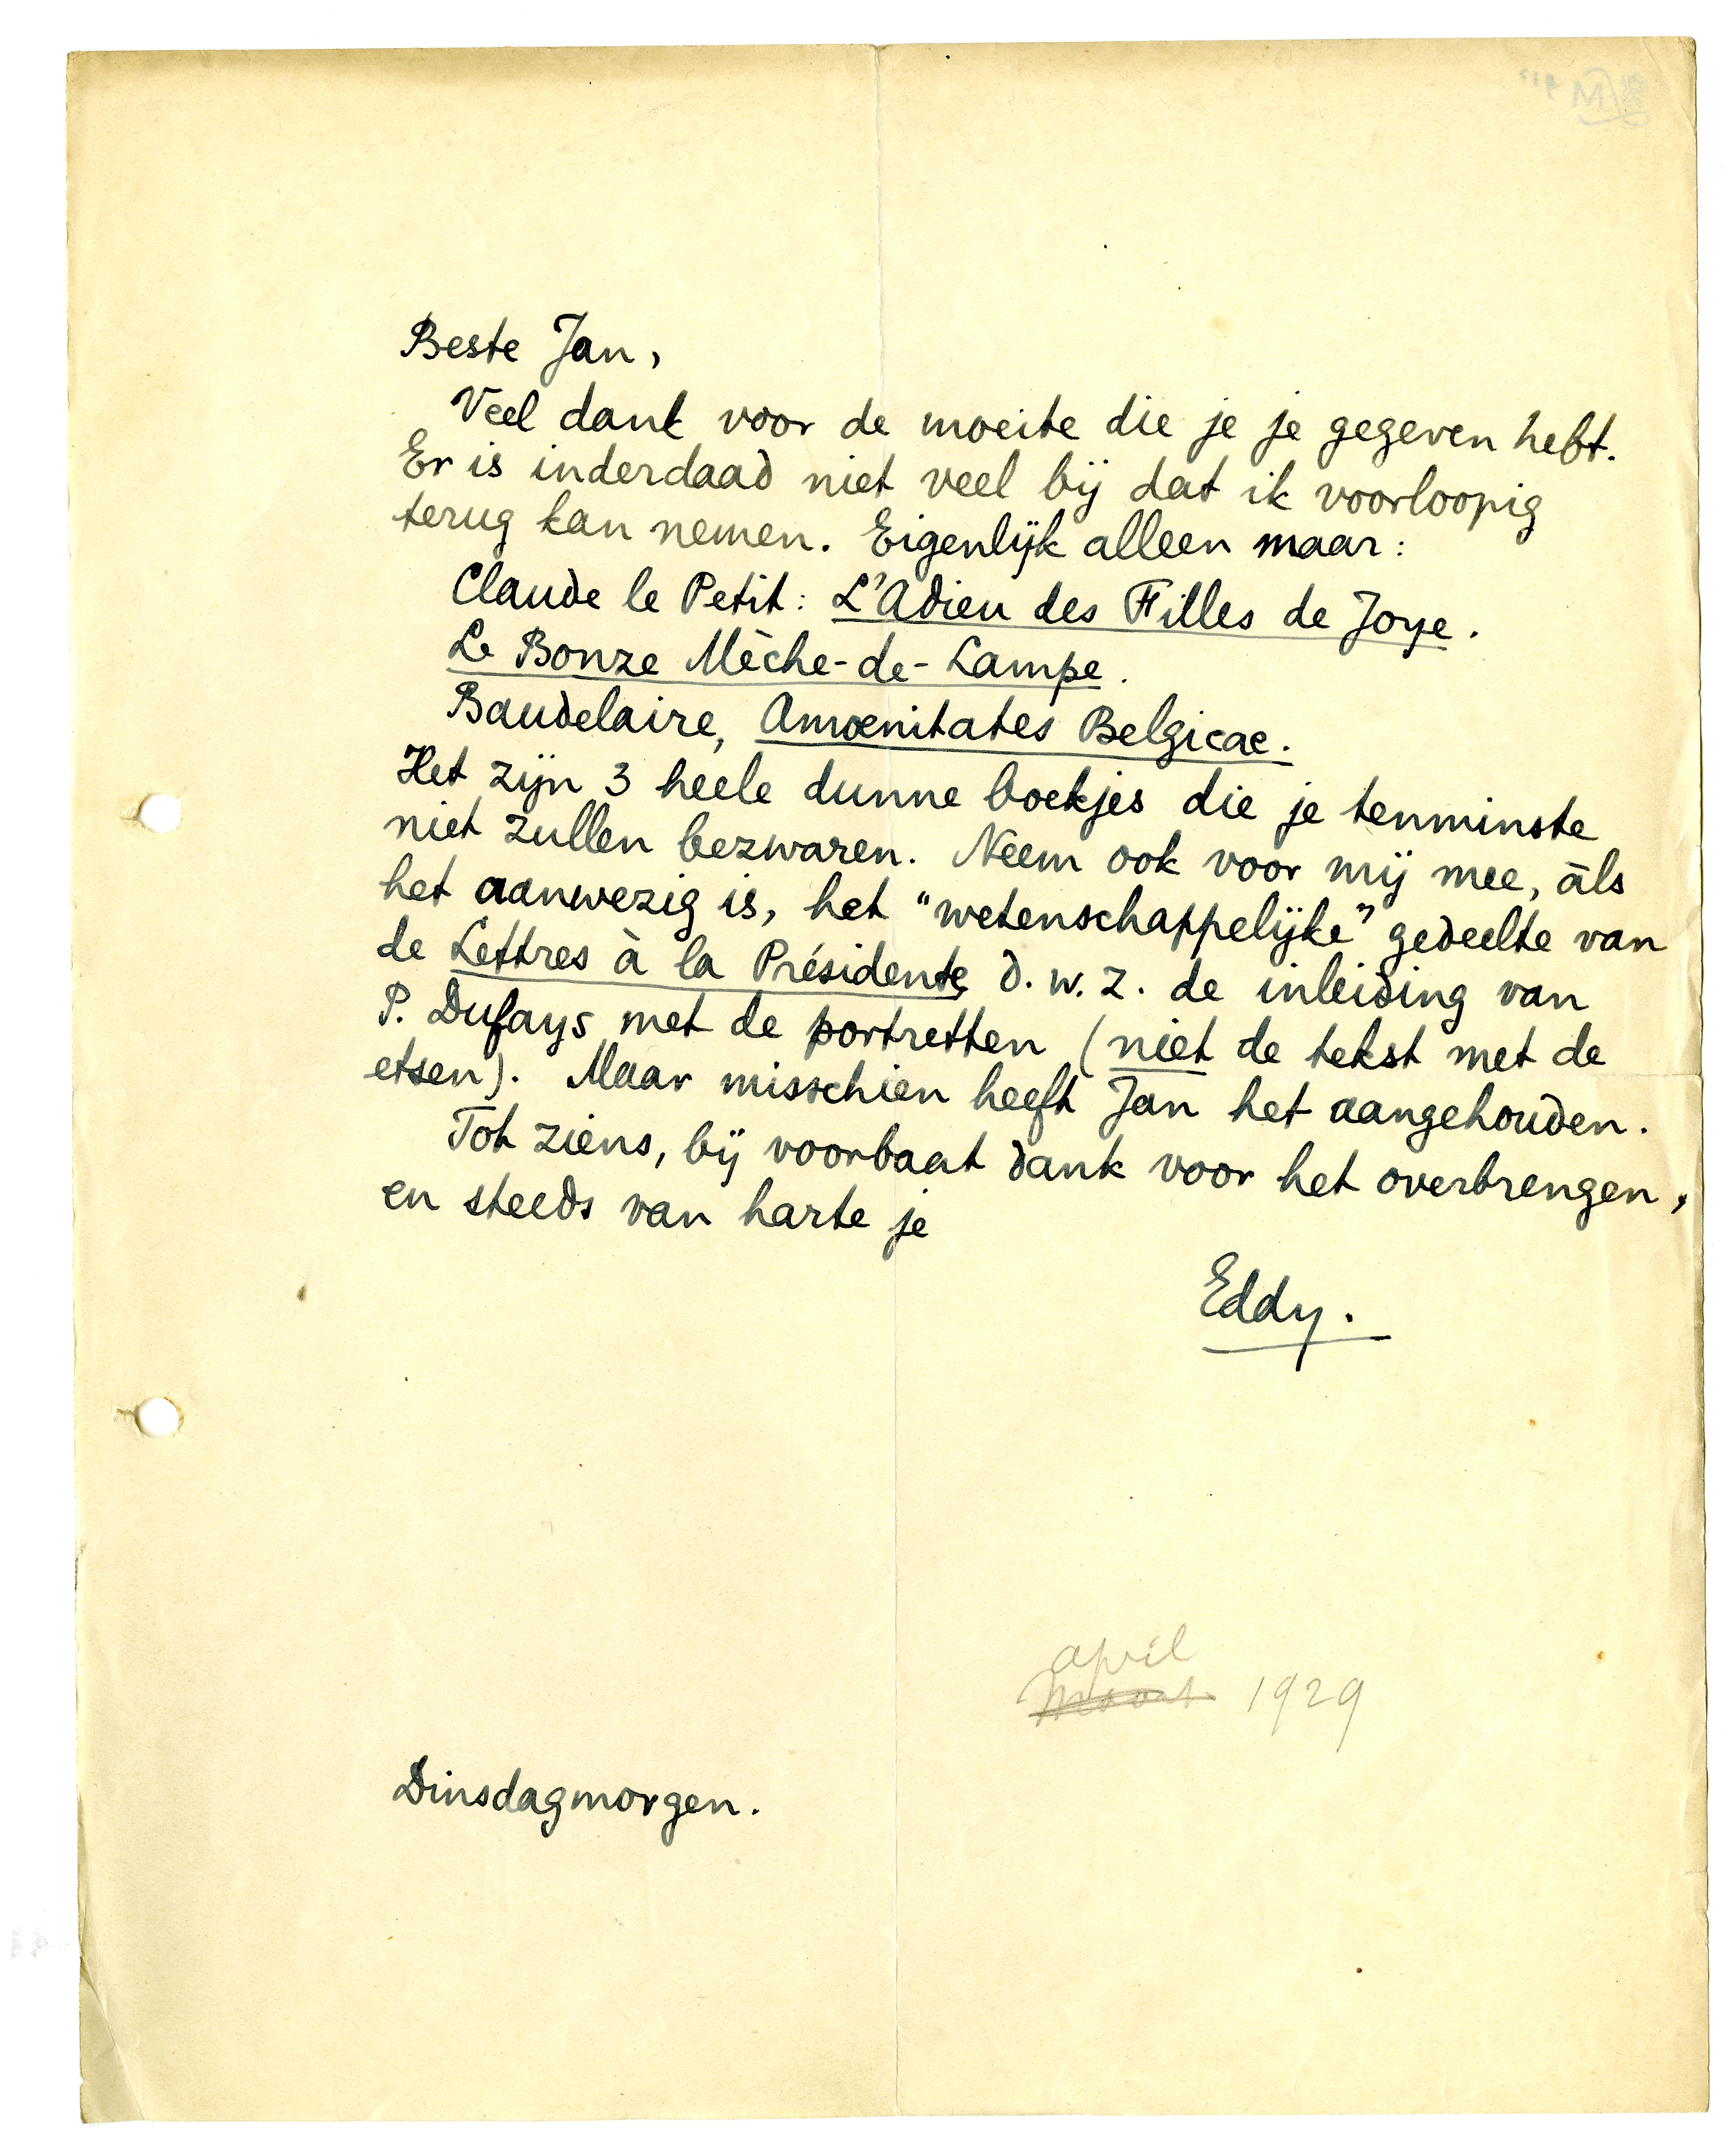 Beste Jan,
Veel dank voor de moeite die je je gegeven hebt.
Er is inderdaad niet veel bij dat ik voorloopig
terug kan nemen. Eigenlijk alleen maar:
Claude le Petit: L'Adieu des Filles de Joye.
Le Bonze Mèche-de-Lampe.
Baudelaire, Amœnitates Belgicae.
Het zijn 3 heele dunne boekjes die je tenminste
niet zullen bezwaren. Neem ook voor mij mee, àls
het aanwezig is, het "wetenschappelijke" gedeelte van
de Lettres à la Présidente, d.w.z. de inleiding van
P. Dufays met de portretten (niet de tekst met de
etsen). Maar misschien heeft Jan het aangehouden.
Tot ziens, bij voorbaat dank voor het overbrengen,
en steeds van harte je
Eddy.
april
Maart 1929
Dinsdagmorgen.